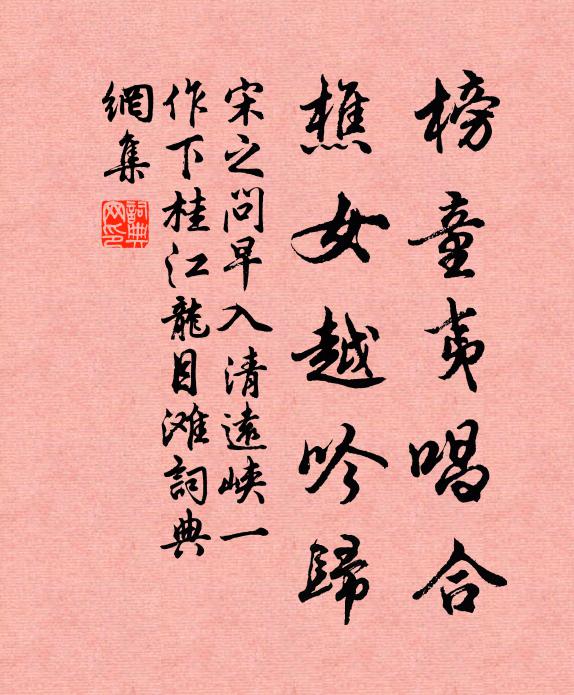 榜童夷唱合
樵女越吟歸
宋之問早入清遠峽一
作下桂江龍目滩詞典
網集
詞典
网印